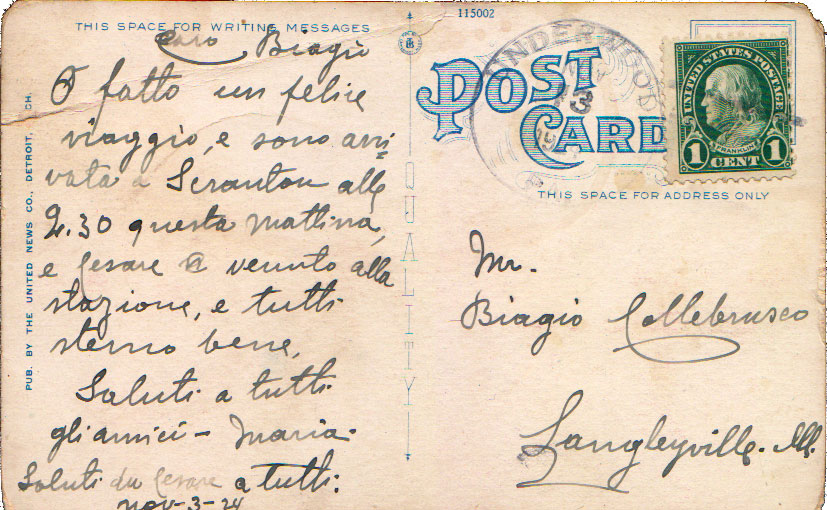 115002
THIS SPACE FOR WRITING MESSAGES
Caro Biagio
O fatto un felice
viaggio, e sono arri-
vata a Scranton alle
2.30 questa mattina,
e Cesare è venuto alla
stazione, e tutti
stemo bene,
Saluti a tutti
gli amici - Maria -
Saluti da Cesare a tutti.
Nov-3-24
PUB. BY THE UNITED NEWS CO., DETROIT, MICH.
QUALITY
UNDERWOOD
NOV
3
POST
CARD
UNITED STATES POSTAGE
FRANKLIN
1 CENT 1
THIS SPACE FOR ADDRESS ONLY
Mr.
Biagio Collebrusco
Langleyville. Ill.